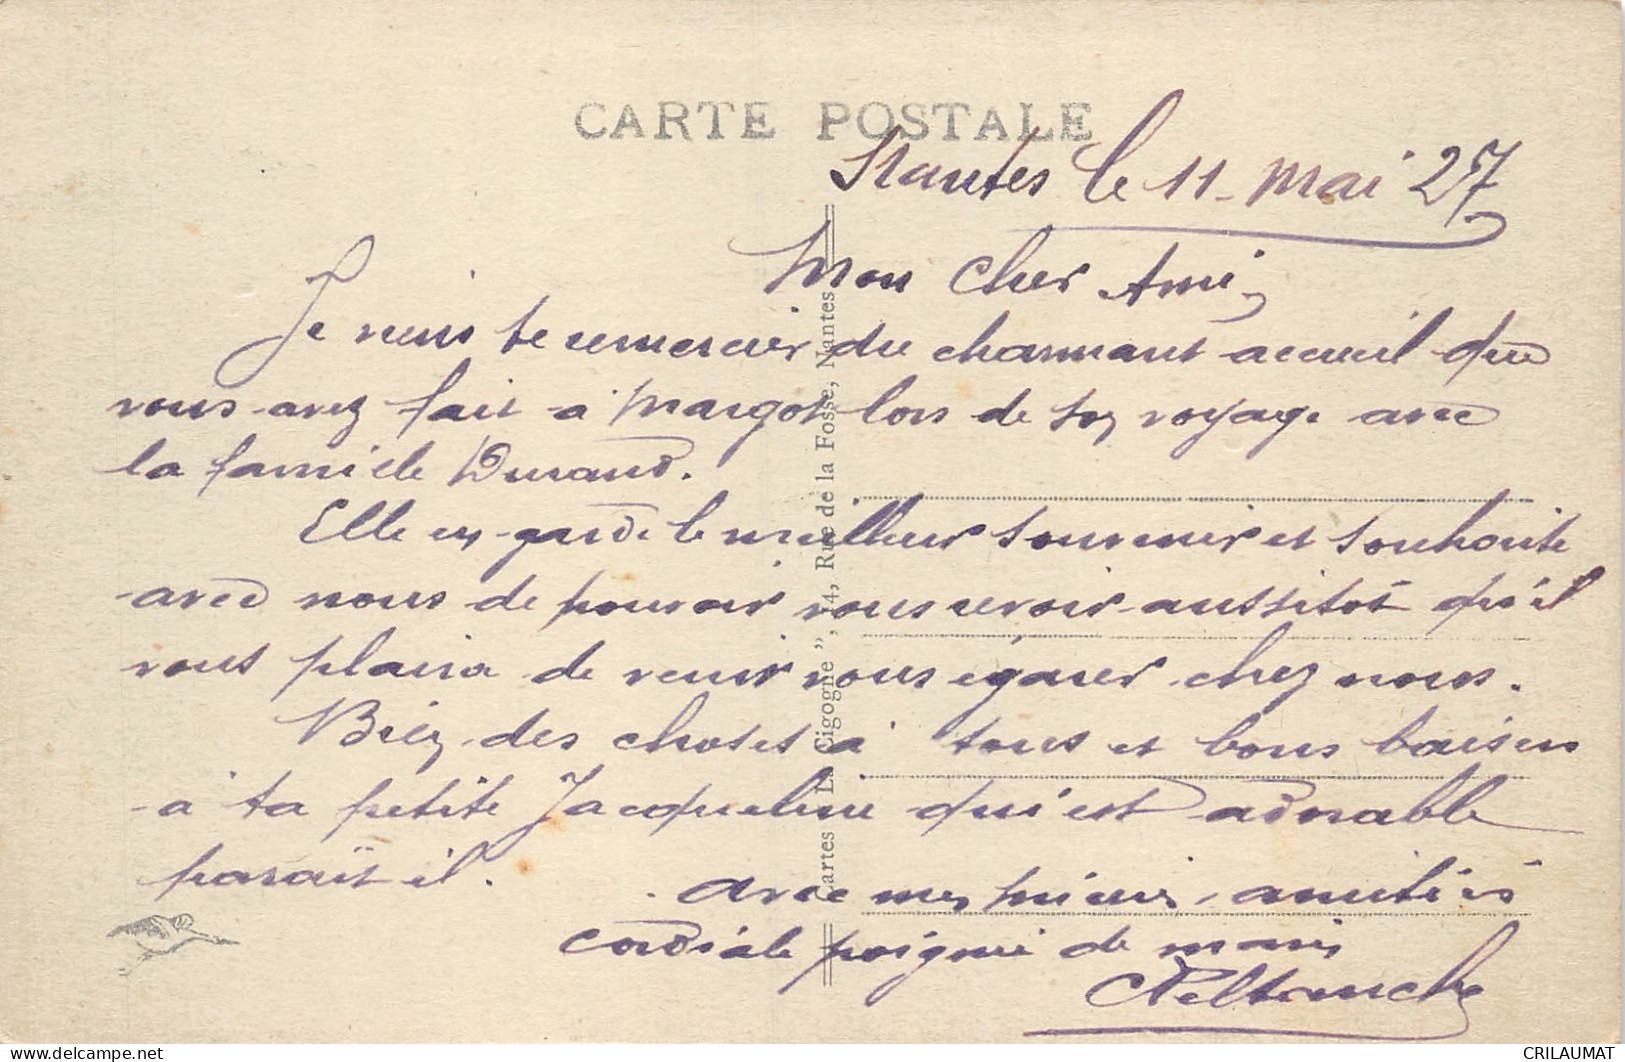 CARTE POSTALE
Nantes le 11 Mai 27
Mon Cher Ami,
Je viens te remercier du charmant accueil que
vous avez fait à Margot lors de son voyage avec
la famille Durand.
Elle en garde le meilleur souvenir et souhaite
avec nous de pouvoir vous revoir aussitôt qu'il
vous plaira de venir vous égarer chez nous.
Bien des choses à tous et bons baisers
à ta petite Jacqueline qui est adorable
parait il.
avec mes amitiés
cordiale poignée de mains
Cartes "La Cigogne", 14, Rue de la Fosse, Nantes
CRILAUMAT